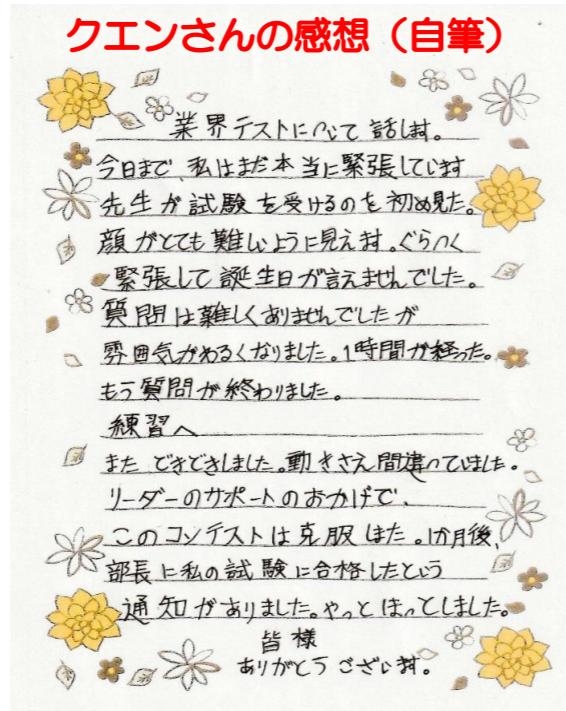 クエンさんの感想（自筆）
業界テストについて話します。
今日まで、私はまだ本当に緊張しています
先生が試験を受けるのを初め見た。
顔がとても難しいように見えます。ぐらつく
緊張して誕生日が言えませんでした。
質問は難しくありませんでしたが
雰囲気がわるくなりました。1時間が経った。
もう質問が終わりました。
練習へ
また どきどきしました。動きさえ間違っていました。
リーダーのサポートのおかげで、
このコンテストは克服した。1か月後、
部長に私の試験に合格したという
通知がありました。やっとほっとしました。
皆様
ありがとうございます。